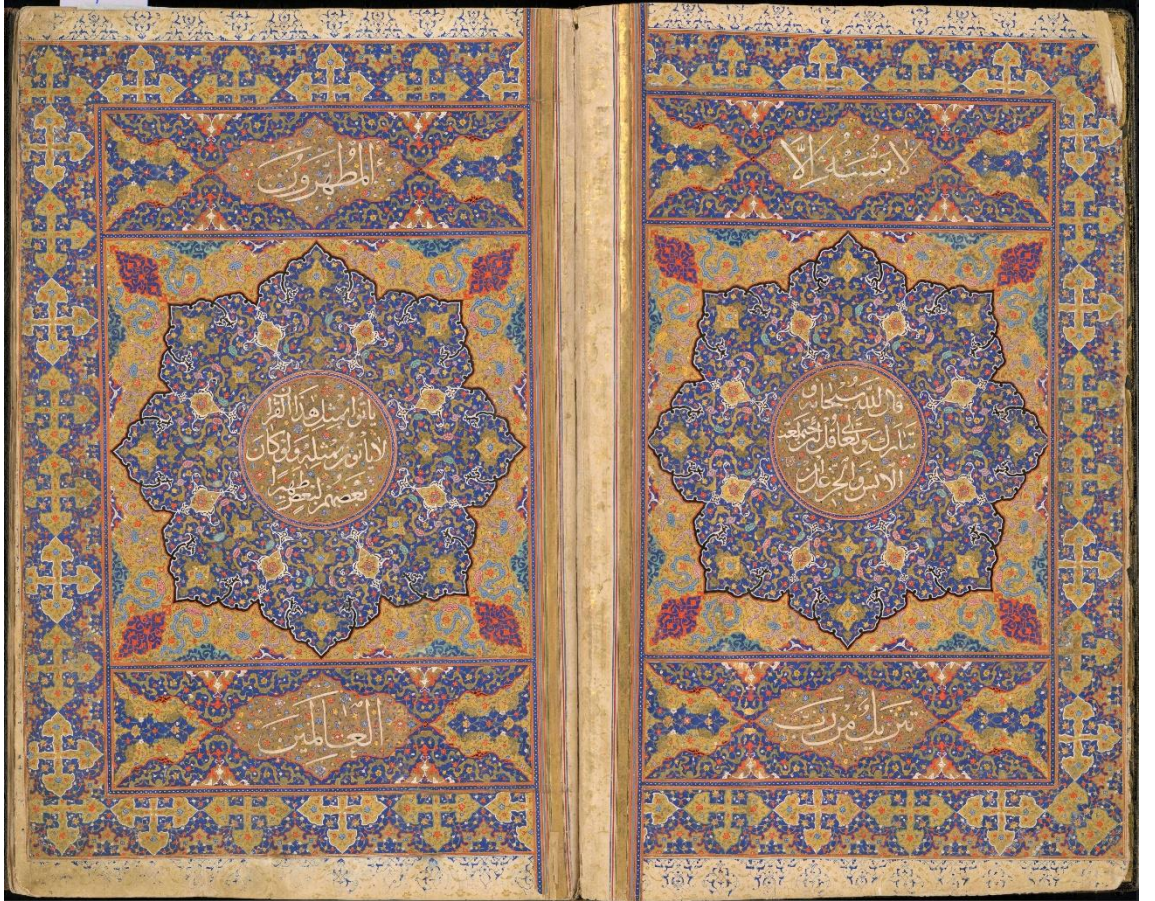 لَا يَمَسُّهُ إِلَّا
قال الله سبحانه و
تبارك وتعالى قل لئن اجتمعت
الانس والجن على ان
تنزيل من رب
المُطَهَّرُونَ
ياتوا بمثل هذا القرا
لا ياتون بمثله ولو كان
بعضهم لبعض ظهيرا
العالمين